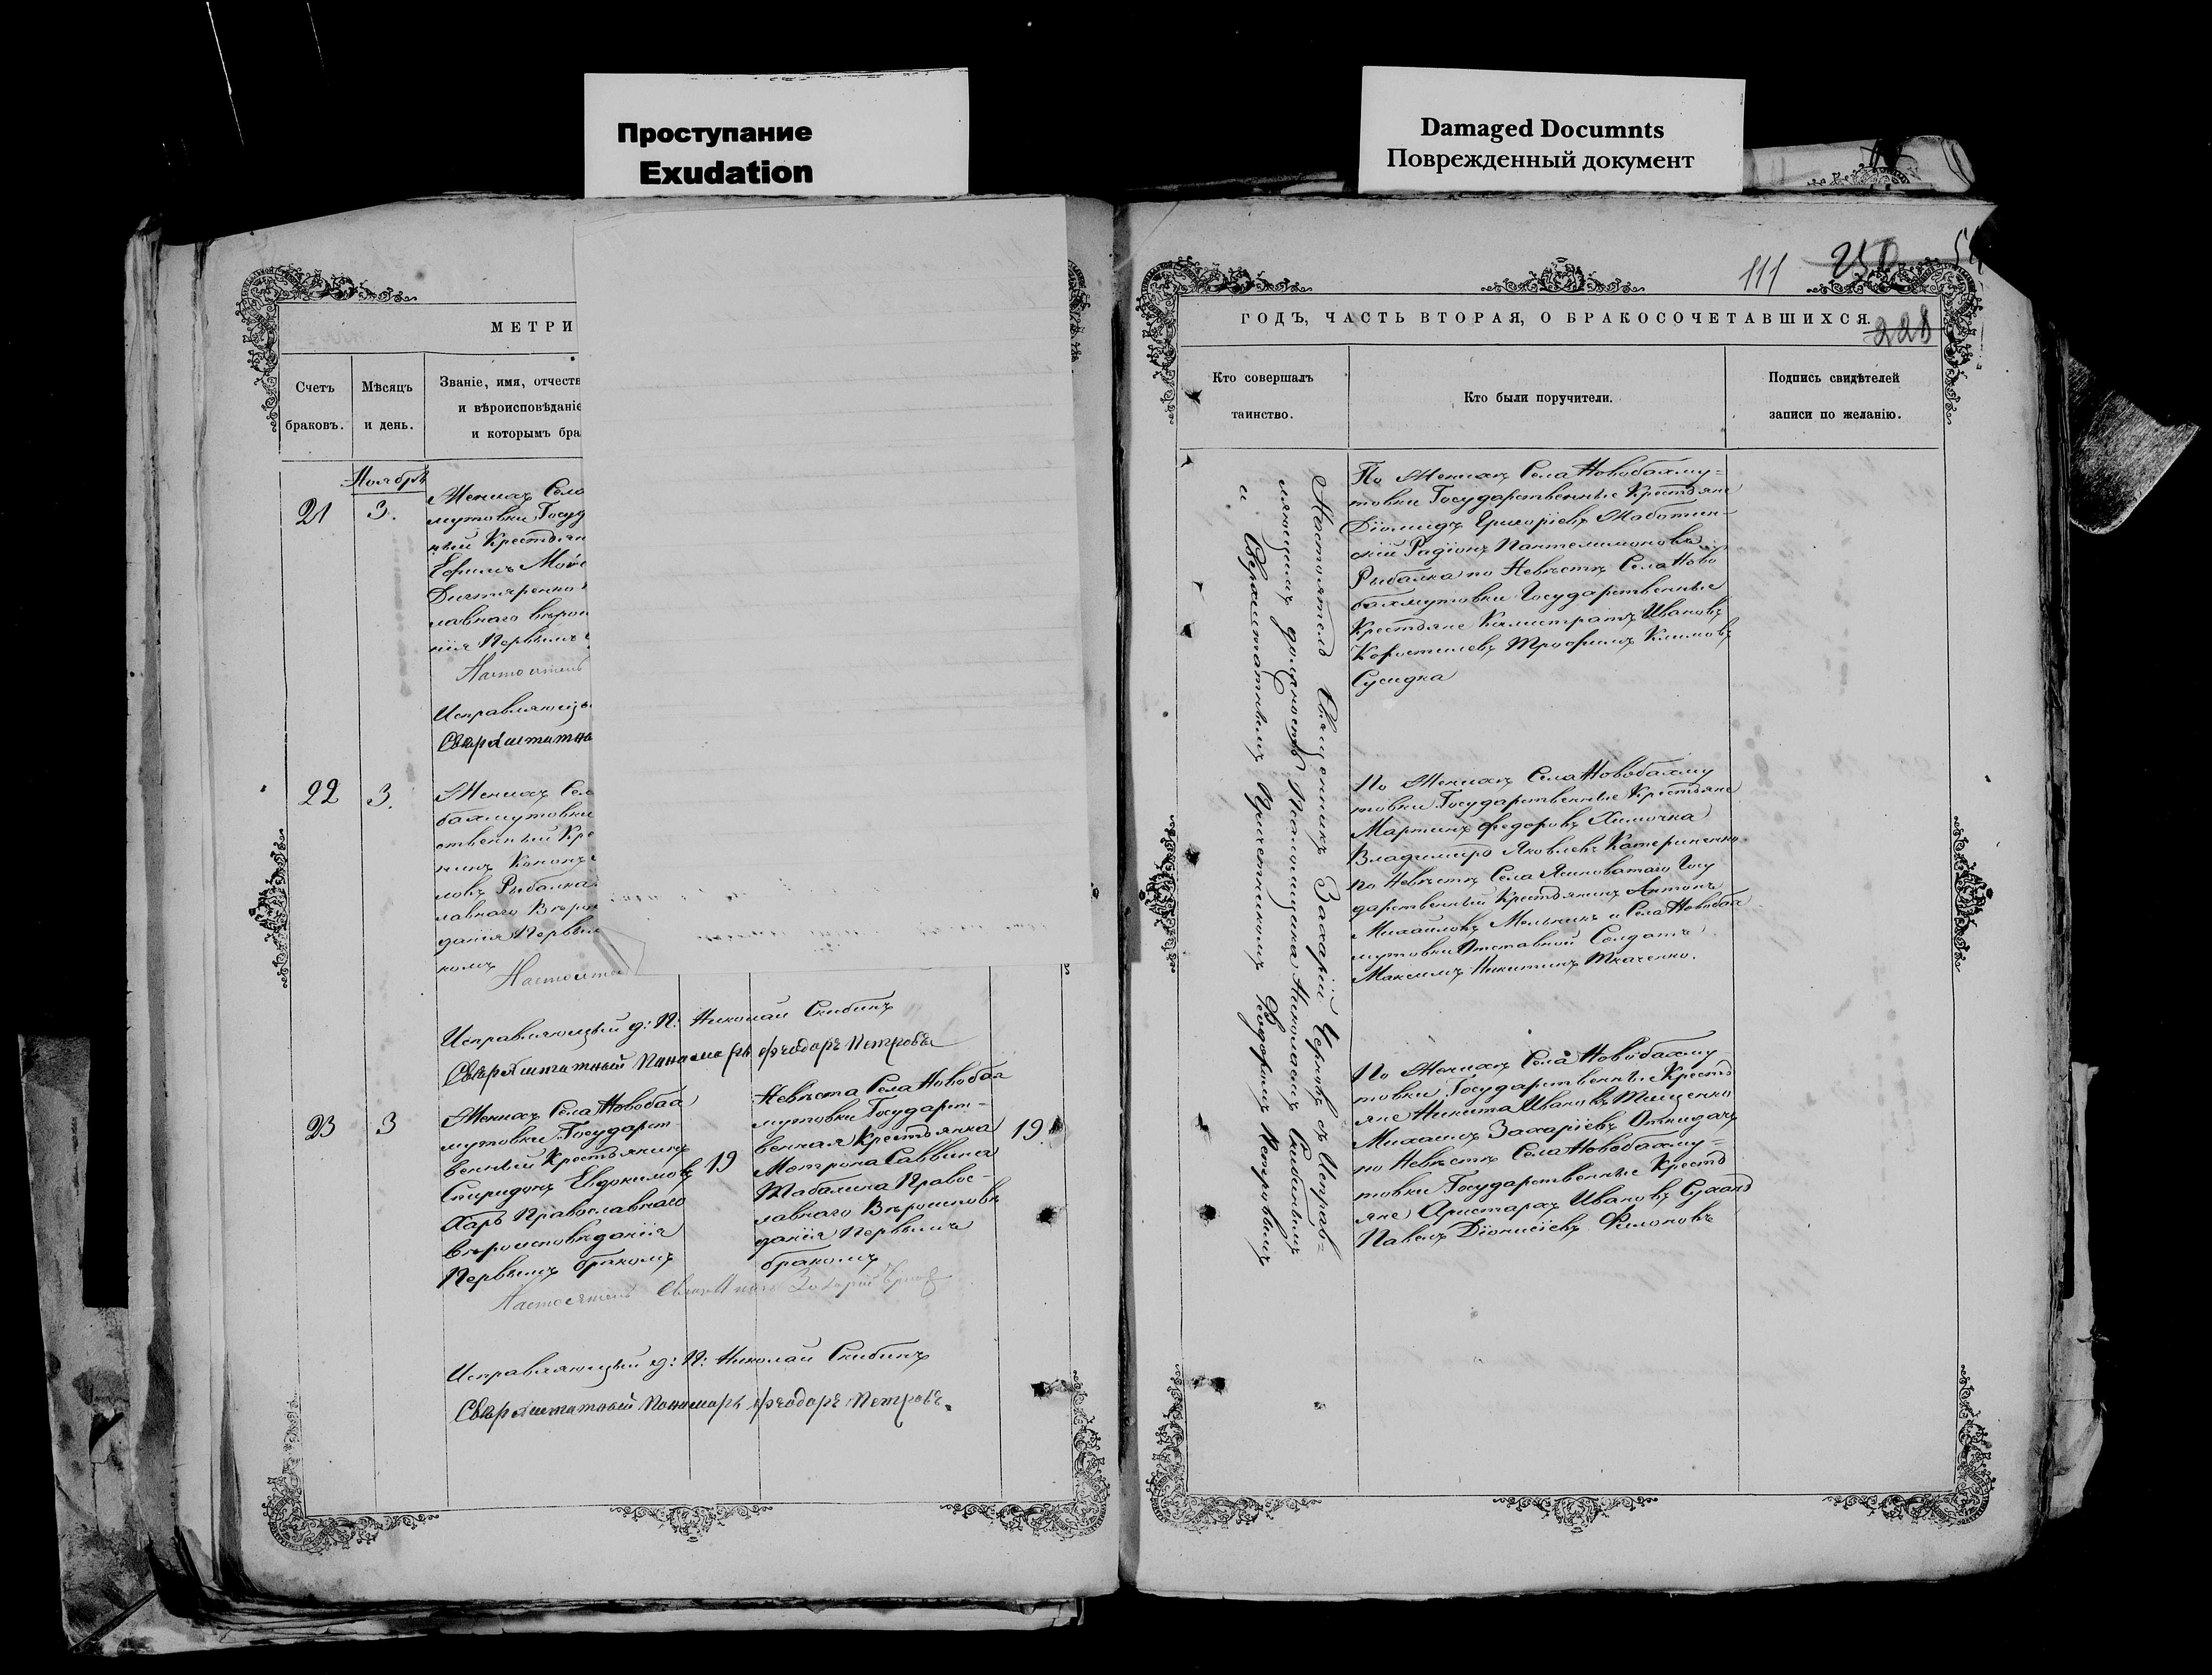 Проступание
Exudation
Damaged Documnts
Поврежденный документ
МЕТРИ
Счетъ
браковъ.
Мѣсяцъ
и день.
Званіе, имя, отчеств
и вѣроисповѣданіе
и которымъ бра
Ноября
21
3.
Женихъ Село
мутовки Госуд
ный Крестьян
Ефимъ
лавнаго вѣрои
нія Первымъ
Настоятель
Исправляющ
Сверхштатны
22
3.
Женихъ Сел
бахмутовки
ственный Кре
нинъ Кононъ
ловъ Рыбалка
лавнаго Вѣро
данія Первы
комъ
Настояте
Исправляющій д: П: Николай Скибинъ
Сверхштатный Пономарь Феодоръ Петровъ
23
3
Женихъ Села Новобах
мутовки Государст
венный Крестьянинъ
Спиридонъ Евдокимовъ
Православнаго
вѣроисповѣданія
Первымъ бракомъ
19
Невѣста Села Новобах
мутовки Государст-
венная Крестьянка
Матрона Саввина
Шабалина Правос-
лавнаго Вѣроисповѣ
данія Первымъ
бракомъ
19.
Настоятель Священникъ Захарій
Исправляющій д: П: Николай Скибинъ
Сверхштатный Пономарь Феодоръ Петровъ.
111
228
ГОДЪ, ЧАСТЬ ВТОРАЯ, О БРАКОСОЧЕТАВШИХСЯ.
Кто совершалъ
таинство.
Кто были поручители.
Подпись свидѣтелей
записи по желанію.
Настоятель Священникъ Захарій Черновъ съ Исправ-
ляющимъ должность Псаломщика Николаемъ Скибинымъ
и Сверхштатнымъ Причетникомъ Феодоромъ Петровымъ
По Женихѣ Села Новобахму-
товки Государственные Крестьяне
Діомидъ Григорьевъ
Радіонъ Пантелимоновъ
Рыбалка по Невѣстѣ Села Ново
бахмутовки Государственные
Крестьяне Калистратъ Ивановъ
Коростилевъ Трофимъ Климовъ
Сусидка
По Женихѣ Села Новобахму
товки Государственные Крестьяне
Мартинъ Федоровъ Химочка
Владимиръ Яковлевъ Катериненко
по Невѣстѣ Села Ясиноватаго Госу
дарственный Крестьянинъ Антонъ
Михаиловъ Мельникъ и Села Новобах
мутовки Отставной Солдатъ
Максимъ Никитинъ Ткаченко.
По Женихѣ Села Новобахму
товки Государственные Кресть
яне Никита Ивановъ Тищенко
Михаилъ Захаріевъ Откидачъ
по Невѣстѣ Села Новобахму-
товки Государственные Кресть
яне Аристархъ Ивановъ
Павелъ Діонисіевъ Филоновъ